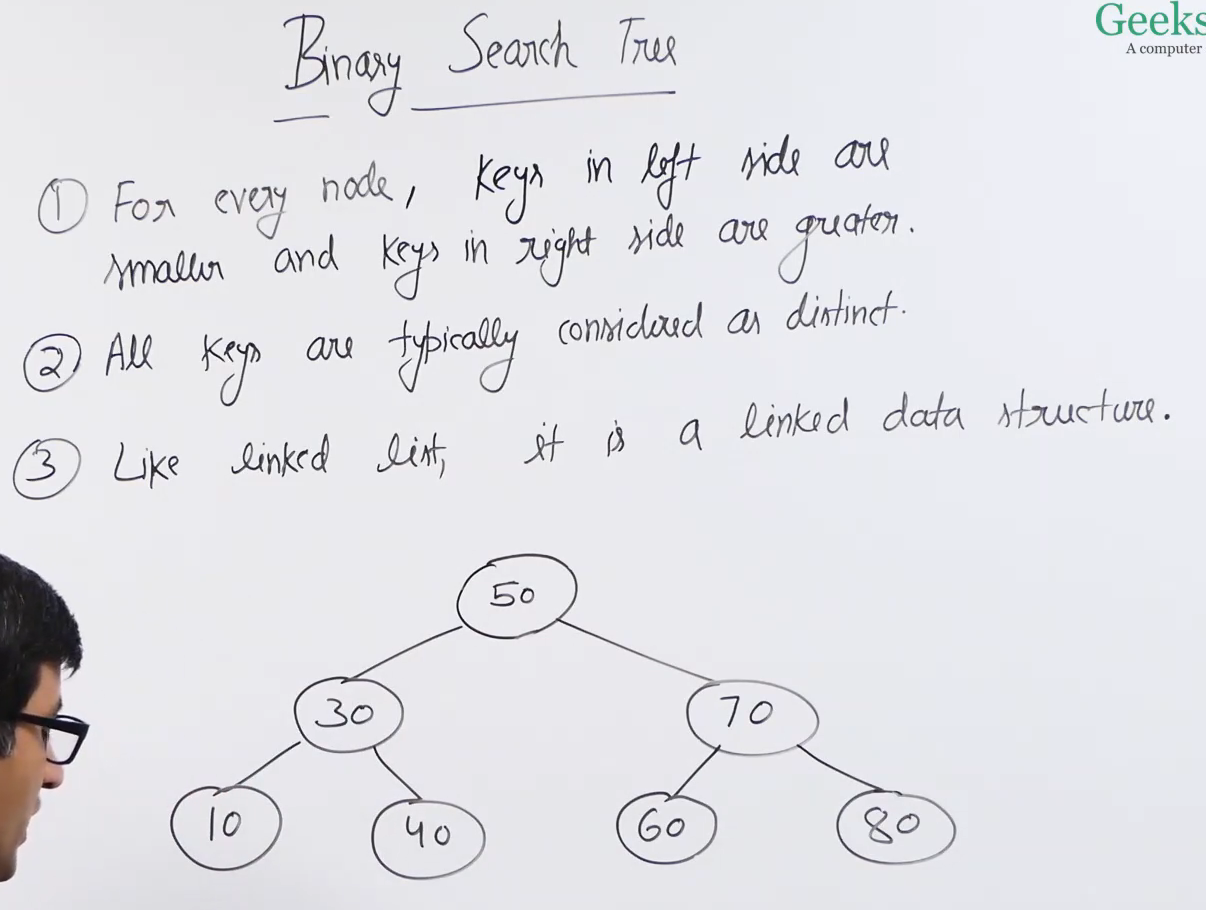 Geeks
A computer
Binary Search Tree
① For every node, keys in left side are
smaller and keys in right side are greater.
② All keys are typically considered as distinct.
③ Like linked list, it is a linked data structure.
50
30 70
10 40 60 80